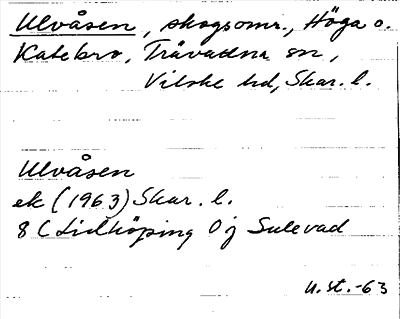 Ulvåsen, skogsomr., Höga o.
Katebro, Tråvadna sn,
Vilske hd, Skar. l.
Ulvåsen
ek (1963) Skar. l.
8 C Lidköping 0 j Sulevad
U. st. -63